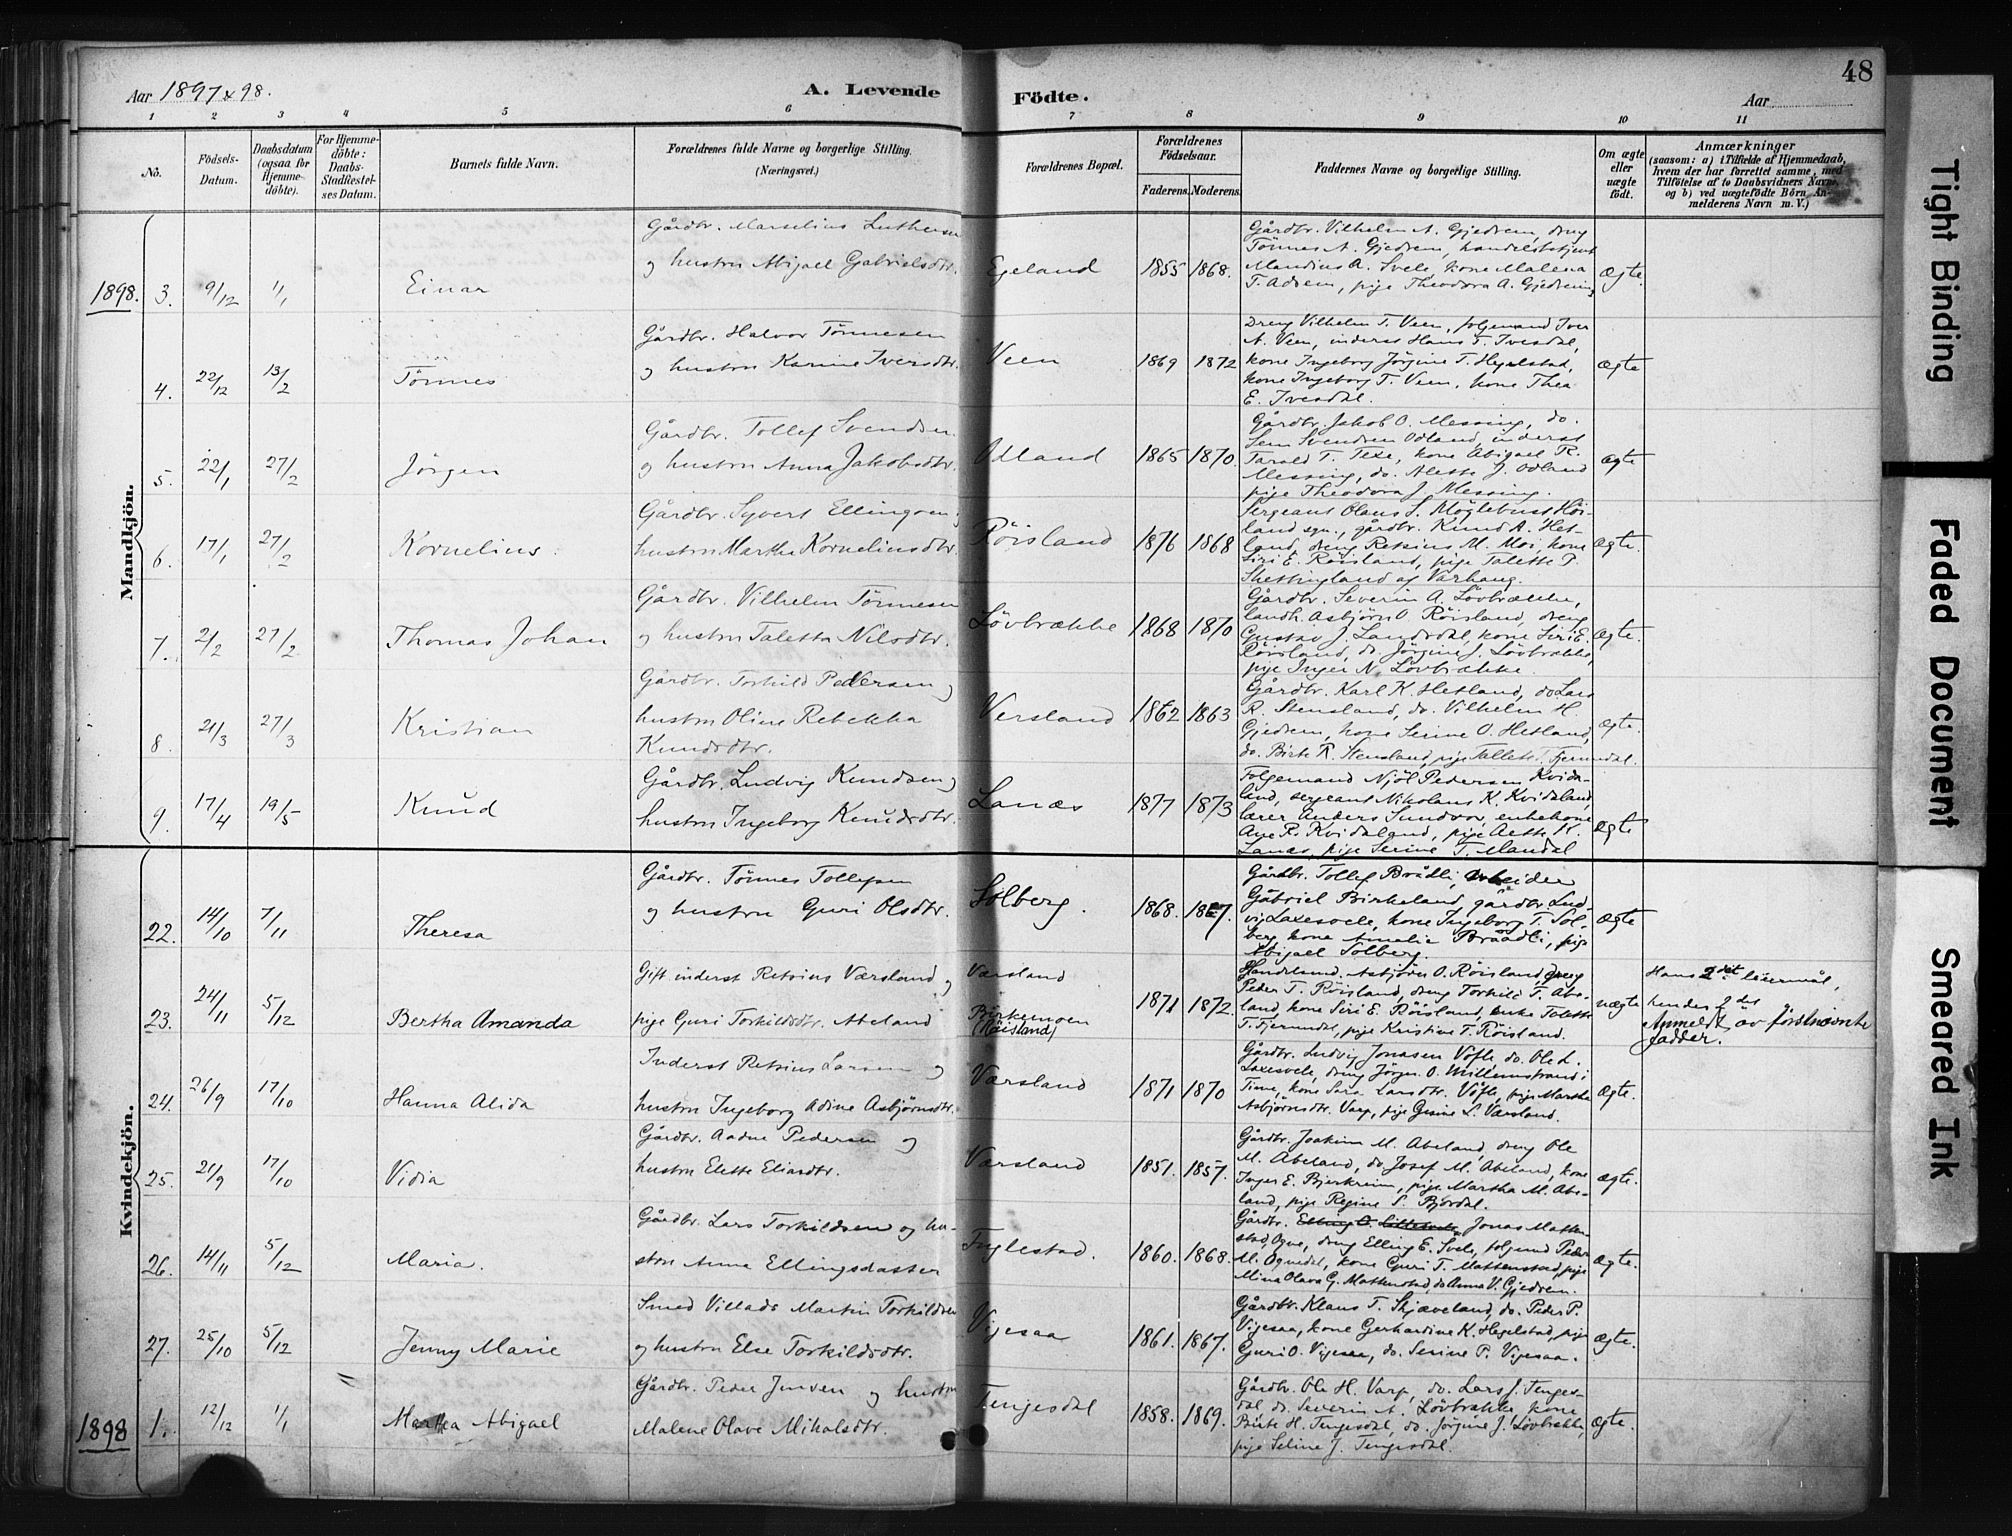 48
Aar 1897 & 98.
A. Levende Födte.
Aar
1 2 3 4 5 6 7 8 9 10 11
No.
Födsels-Datum.
Daabsdatum (ogsaa for Hjemme-döbte).
For Hjemme-döbte: Daabs-Stadfæstel-ses Datum.
Barnets fulde Navn.
Forældrenes fulde Navne og borgerlige Stilling.
(Næringsvei.)
Forældrenes Bopæl.
Forældrenes Födselsaar.
Faderens. Moderens.
Faddernes Navne og borgerlige Stilling.
Om ægte eller uægte født.
Anmærkninger
(saasom: a) i Tilfælde af Hjemmedaab,
hvem der har forrettet samme, med
Tilföielse af to Daabsvidners Navne,
og b) ved uægtefödte Börn An-
melderens Navn m. V.)
Mandkjön.
1898. 3. 9/12 1/1 Einar
Gårdbr. Marselius Luthersen
og hustru Abigael Gabrielsdtr.
Egeland 1855 1868.
Gårdbr. Vilhelm A. Gjedrem, dreng
Tönnes A. Gjedrem, handelsbetjent
Maudius A. Svele, kone Malena
T. Adsem, pige Theodora A. Gjedrem,
Ægte.
4. 22/12 13/2 Tönnes
Gårdbr. Halvor Tönnesen
og hustru Karine Iversdtr.
Veen 1869 1872
Dreng Vilhelm T. Veen, folgemand Iver
A. Veen, inderst Hans T. Ivesdal,
kone Ingeborg Jörgine T. Hegelstad,
kone Ingeborg T. Veen, kone Thea
E. Ivesdal.
Ægte
5. 22/1 27/2 Jörgen
Gårdbr. Tollef Svendsen
og hustru Anna Jakobsdtr.
Odland 1865 1870.
Gårdbr. Jakob O. Messing, do.
Sem Svendsen Odland, inderst
Tarald T. Texe, kone Abigael R.
Messing, do. Alette J. Odland
pige Theodora J. Messing.
Ægte
6. 17/1 27/2 Kornelius.
Gårdbr. Syvert Ellingsen
hustru Martha Korneliusdtr.
Röisland 1876 1868
Sergeant Olaus S. Möglebust Höi-
land sgn., gårdbr. Knud A. Het-
land, dreng Retsius M. Moi, kone
Siri E. Röisland, pige Talette P.
Skettingland af Varhaug.
Ægte.
7. 2/2 27/2 Thomas Johan
Gårdbr. Vilhelm Tönnesen
og hustru Taletta Nilsdtr.
Lövbrække 1868 1870
Gårdbr. Severin A. Lövbrække,
landh. Asbjörn O. Röisland, dreng
Gustav J. Landsdal, kone Siri E.
Röisland, do. Jörgine J. Lövbrække,
pige Inger N. Lövbrække
Ægte.
8. 21/3 27/3 Kristian
Gårdbr. Torkild Pedersen
hustru Oline Rebekka
Knudsdtr.
Versland 1862 1863
Gårdbr. Karl K. Hetland, do Lars
R. Stensland, do. Vilhelm H.
Gjedrem, kone Serine O. Hetland,
do. Birte R. Stensland, pige Tallete T. Tjermdal.
Ægte.
9. 17/4 19/5 Knud
Gårdbr. Ludvig Knudsen
hustru Ingeborg Knudsdtr.
Lanæs 1877 1873
Folgemand Njöl Pedersen Kvida-
land, sergeant Nikolaus K. Kvidaland,
lærer Anders Sundvor, enkekone
Ane R. Kvidaland, pige Aette K.
Lanæs, pige Serine T. Mandal
Ægte
Kvindekjön.
22. 14/10 7/11 Theresa
Gårdbr. Tönnes Tollefsen
og hustru Guri Olsdtr.
Solberg. 1868. 1867.
Gårdbr. Tollef Brådli, arbeider
Gabriel Birkeland, gårdbr. Lud-
vig Laxesvele, kone Ingeborg T. Sol-
berg, kone Amalie Braadli, pige
Abigael Solberg.
Ægte
23. 24/11 5/12 Bertha Amanda
Gift inderst Retsius Værsland og
pige Guri Torkildsdtr. Abeland
Værsland
Birkemoen
(Röisland)
1871 1872.
Handelsmd. Asbjörn O. Röisland, dreng
Peder T. Röisland, dreng Torkild T. Abe-
land, kone Siri E. Röisland, enke Talette
T. Tjermdal, pige Kristine T. Röisland.
uægte
Hans 2det leiermål,
hendes 2det
Anmeldt av förstnevnte
fadder.
24. 26/9 17/10 Hanna Alida
Inderst Retsius Larsen og
hustru Ingeborg Adine Asbjörnsdtr.
Værsland 1871 1870
Gårdbr. Ludvig Jonasen Vöfle, do. Ole L.
Laxesvele, dreng Jörgen O. Millemstrand i
Time, kone Sara Larsdtr. Vöfle, pige Martha
Asbjörnsdtr. Varp, pige Gesine L. Værsland.
Ægte.
25. 21/9 17/10 Vidia
Gårdbr. Aadne Pedersen og
hustru Elette Eliasdtr.
Værsland 1851. 1857.
Gårdbr. Joakim M. Abeland, dreng Ole
M. Abeland, do. Josef M. Abeland, kone
Inger E. Bjerkreim, pige Martha M. Abe-
land, pige Regine S. Bjordal.
Ægte.
26. 14/11 5/12 Maria.
Gårdbr. Lars Torkildsen og hu-
stru Anna Ellingsdatter
Tuglestad. 1860. 1868.
Gårdbr. Jonas Matten-
stad, Ogne, dreng Elling E. Svele, folgemd Peder
M. Ognedal, kone Guri T. Mattenstad, pige
Mina Olava G. Mattenstad, do Anna V. Gjedrem.
Ægte.
27. 25/10 5/12 Jenny Marie
Smed Villads Martin Torkildsen
og hustru Else Torkildsdtr.
Vigesaa 1861. 1867.
Gårdbr. Klaus T. Skjæveland, do. Peder P.
Vigesaa, kone Gerhardine K. Hegelstad, pige
Guri O. Vigesaa, do. Serine P. Vigesaa.
Ægte.
1898 1. 12/12 1/1 Martha Abigael
Gårdbr. Peder Jensen og hustru
Malene Olave Mikalsdtr.
Tengesdal 1858. 1869.
Gårdbr. Ole H. Varp, do. Lars J. Tenges-
dal, do. Severin A. Lövbrække, kone
Birte H. Tengesdal, do. Jörgine J. Lövbrække,
pige Seline J. Tengesdal.
Ægte.
Tight Binding
Faded Document
Smeared Ink